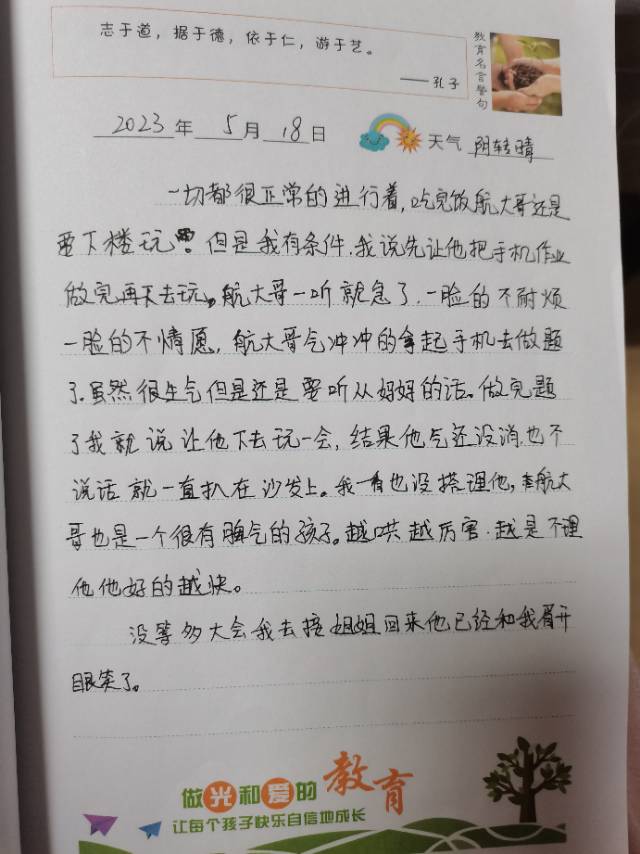 志于道，据于德，依于仁，游于艺。
——孔子
教育名言警句
2023年 5月 18日 天气 阴转晴
一切都很正常的进行着，吃完饭航大哥还是
要下楼玩。但是我有条件，我说先让他把手机作业
做完再下去玩，航大哥一听就急了，一脸的不耐烦
一脸的不情愿，航大哥气冲冲的拿起手机去做题
了。虽然很生气但是还是要听从妈妈的话。做完题
了我就说让他下去玩一会，结果他气还没消，也不
说话就一直趴在沙发上。我一看也没搭理他，航大
哥也是一个很有脾气的孩子。越哄越厉害，越是不理
他他好的越快。
没等多大会我去接姐姐回来他已经和我眉开
眼笑了。
做光和爱的教育
让每个孩子快乐自信地成长